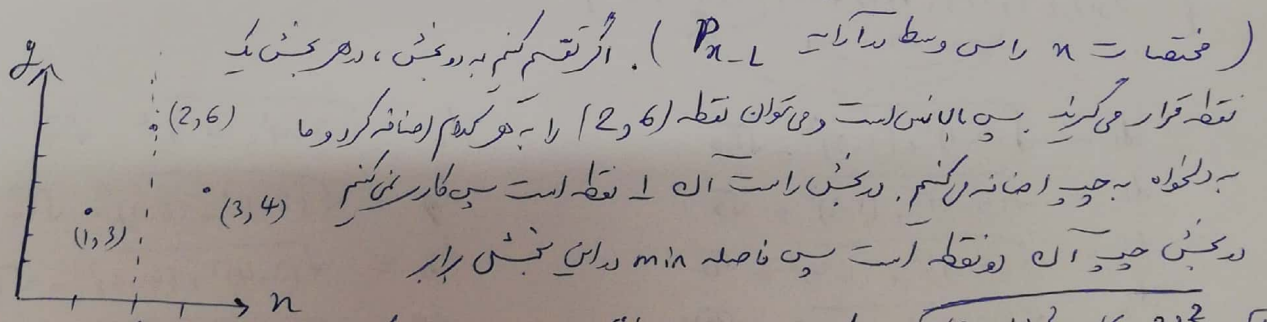 (مختصات x راس وسط در آرایه P_{x-L}). اگر تقسیم کنیم به دو بخش، در هر بخش یک
نقطه قرار می‌گیرند پس بالانس است و می‌توان نقطه (2,6) را به هر کدام اضافه کرد و ما
به دلخواه به چپ اضافه می‌کنیم. در بخش راست آن 1 نقطه است پس کاری نمی‌کنیم
در بخش چپ آن دو نقطه است پس فاصله min در این بخش برابر
y
(2,6)
(3,4)
(1,3)
x